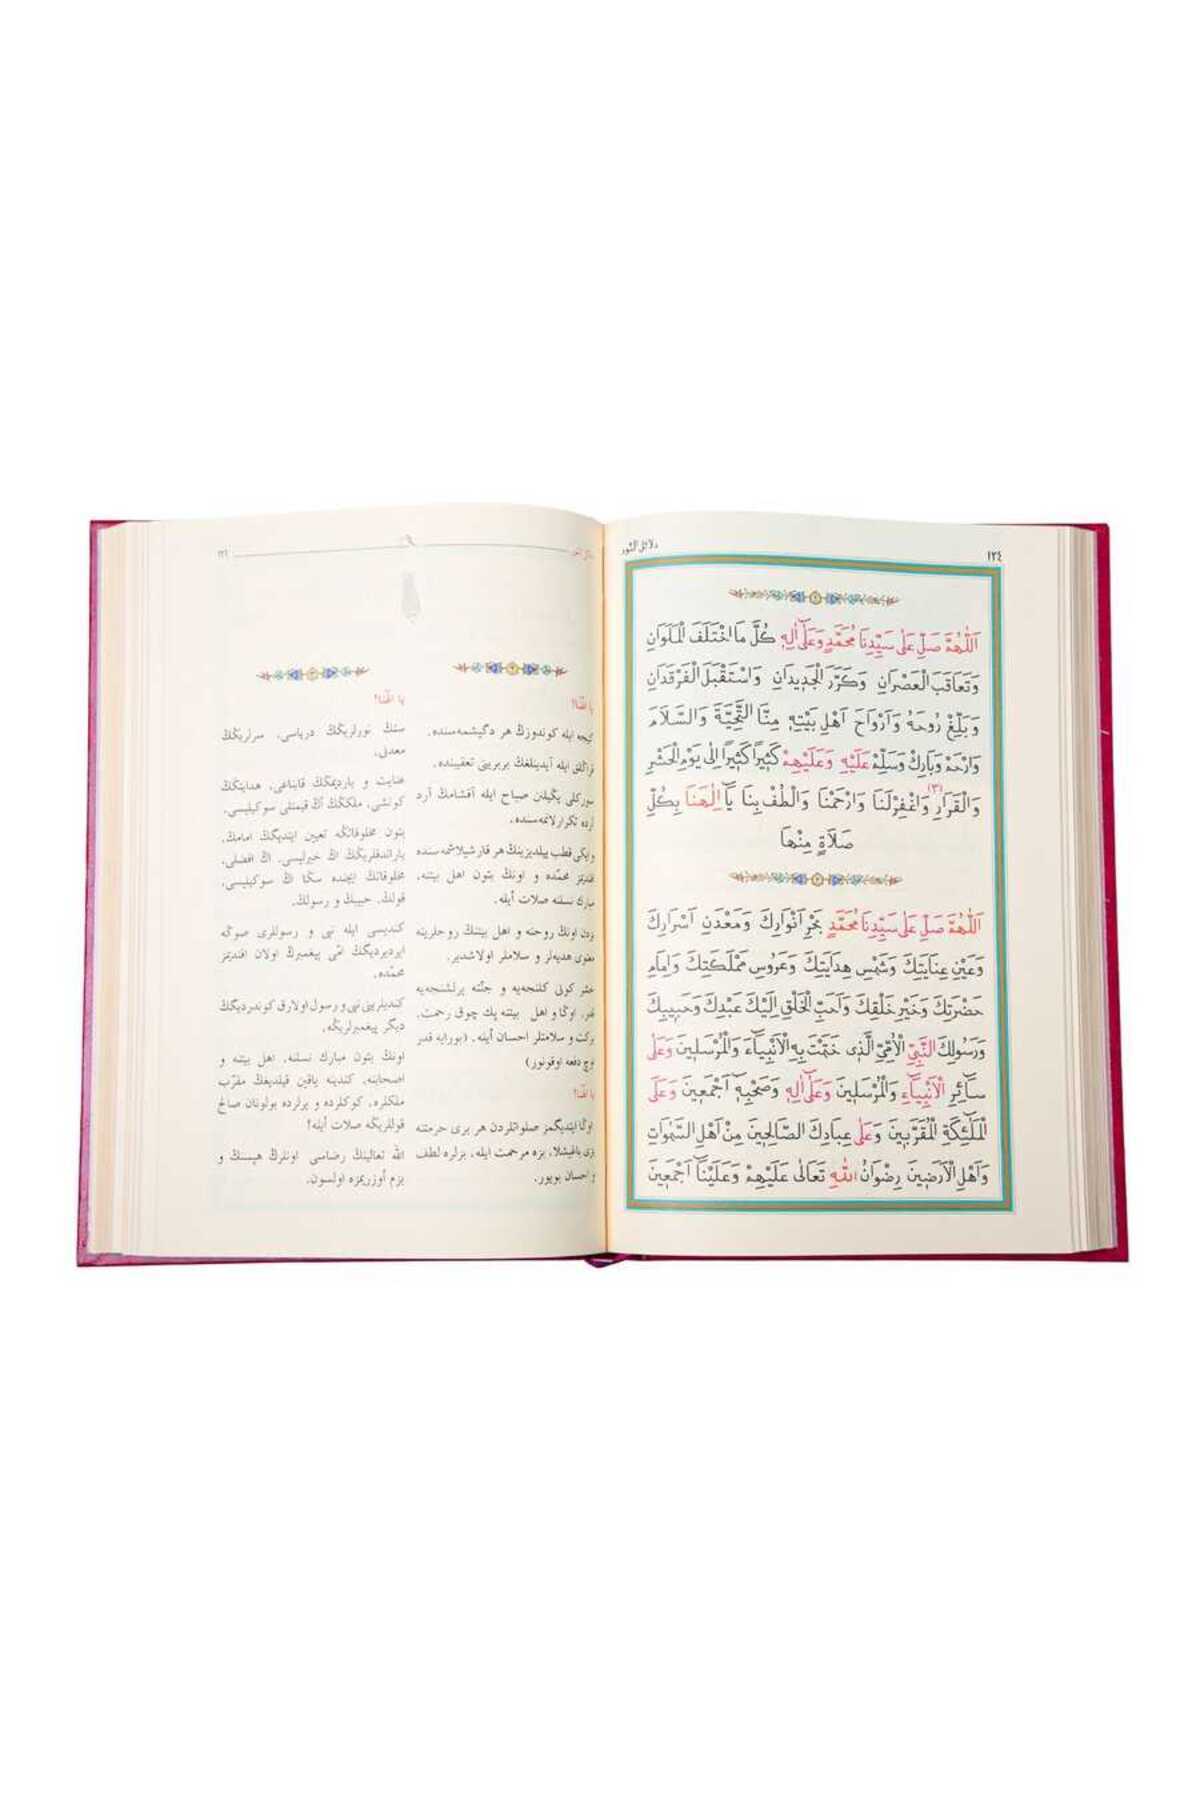 ١٢٤
دلائل النور
اَللّٰهُمَّ صَلِّ عَلٰى سَيِّدِنَا مُحَمَّدٍ وَعَلٰٓى اٰلِهٖ كُلَّ مَا اخْتَلَفَ الْمَلَوَانِ
وَتَعَاقَبَ الْعَصْرَانِ وَكَرَّرَ الْجَدٖيدَانِ وَاسْتَقْبَلَ الْفَرْقَدَانِ
وَبَلِّغْ رُوحَهُ وَاَرْوَاحَ اَهْلِ بَيْتِهٖ مِنَّا التَّحِيَّةَ وَالسَّلَامَ
وَارْحَمْ وَبَارِكْ وَسَلِّمْ عَلَيْهِ وَعَلَيْهِمْ كَثٖيرًا كَثٖيرًا اِلٰى يَوْمِ الْحَشْرِ
وَالْقَرَارِ (٣) وَاغْفِرْلَنَا وَارْحَمْنَا وَالْطُفْ بِنَا يَٓا اِلٰهَنَا بِكُلِّ
صَلَاةٍ مِنْهَا
اَللّٰهُمَّ صَلِّ عَلٰى سَيِّدِنَا مُحَمَّدٍ بَحْرِ اَنْوَارِكَ وَمَعْدَنِ اَسْرَارِكَ
وَعَيْنِ عِنَايَتِكَ وَشَمْسِ هِدَايَتِكَ وَعَرُوسِ مَمْلَكَتِكَ وَاِمَامِ
حَضْرَتِكَ وَخَيْرِ خَلْقِكَ وَاَحَبِّ الْخَلْقِ اِلَيْكَ عَبْدِكَ وَحَبٖيبِكَ
وَرَسُولِكَ النَّبِيِّ الْاُمِّيِّ الَّذٖى خَتَمْتَ بِهِ الْاَنْبِيَٓاءَ وَالْمُرْسَلٖينَ وَعَلٰى
سَٓائِرِ الْاَنْبِيَٓاءِ وَالْمُرْسَلٖينَ وَعَلٰٓى اٰلِهٖ وَصَحْبِهٖٓ اَجْمَعٖينَ وَعَلَى
الْمَلٰٓئِكَةِ الْمُقَرَّبٖينَ وَعَلٰى عِبَادِكَ الصَّالِحٖينَ مِنْ اَهْلِ السَّمٰوَاتِ
وَاَهْلِ الْاَرَضٖينَ رِضْوَانُ اللّٰهِ تَعَالٰى عَلَيْهِمْ وَعَلَيْنَٓا اَجْمَعٖينَ
يا الٰهنا!
كيجه ايله كوندوزڭ هر دگيشمه‌سنده،
قراڭلق ايله آيدينلغڭ بربرينى تعقيبنده،
سوركلى يڭيلنن صباح ايله آقشامڭ آرد
آرده تكرارلانمه‌سنده،
وايكى قطب ييلديزينڭ هر قارشيلاشمه‌سنده
محمّده و اونڭ بتون اهل بيتنه،
مبارك نسلنه صلات أيله.
بزدن اونڭ روحنه و اهل بيتنڭ روحلرينه
معنوى هديه‌لر و سلاملر اولاشدير.
حشر كونى كلنجه‌يه و جنّته يرلشنجه‌يه
قدر، اوڭا و اهل بيتنه پك چوق رحمت،
بركت و سلامتلر احسان أيله. (بورايه قدر
اوچ دفعه اوقونور)
يا الٰهنا!
اوڭا ايتديگمز صلواتلردن هر برى حرمتنه
بزى باغيشلا، بزه مرحمت ايله، بزلره لطف
و احسان بويور.
يا الٰهنا!
سنڭ نورلريڭڭ درياسى، سرلريڭڭ
معدنى،
عنايت و يارديمڭڭ قايناغى، هدايتڭڭ
كونشى، ملكڭڭ اڭ قيمتلى سوكيليسى،
بتون مخلوقاتڭه تعيين ايتديگڭ امامڭ،
ياراتدقلريڭڭ اڭ خيرليسى، اڭ افضلى،
مخلوقاتڭ ايچنده سڭا اڭ سوكيليسى،
قولڭ، حبيبڭ و رسولڭ،
كنديسى ايله نبى و رسوللرى صوڭه
ايرديرديگڭ امّى پيغمبرڭ اولان افنديمز
محمّده،
كنديلرينى نبى و رسول اولارق كوندرديگڭ
ديگر پيغمبرلريڭه،
اونڭ بتون مبارك نسلنه، اهل بيتنه و
اصحابنه، كندينه ياقين قيلديغڭ مقرّب
ملكلره، كوكلرده و يرلرده بولونان صالح
قوللريڭه صلات أيله!
الله تعالينڭ رضاسى اونلرڭ هپسنڭ و
بزم أوزريمزه اولسون.